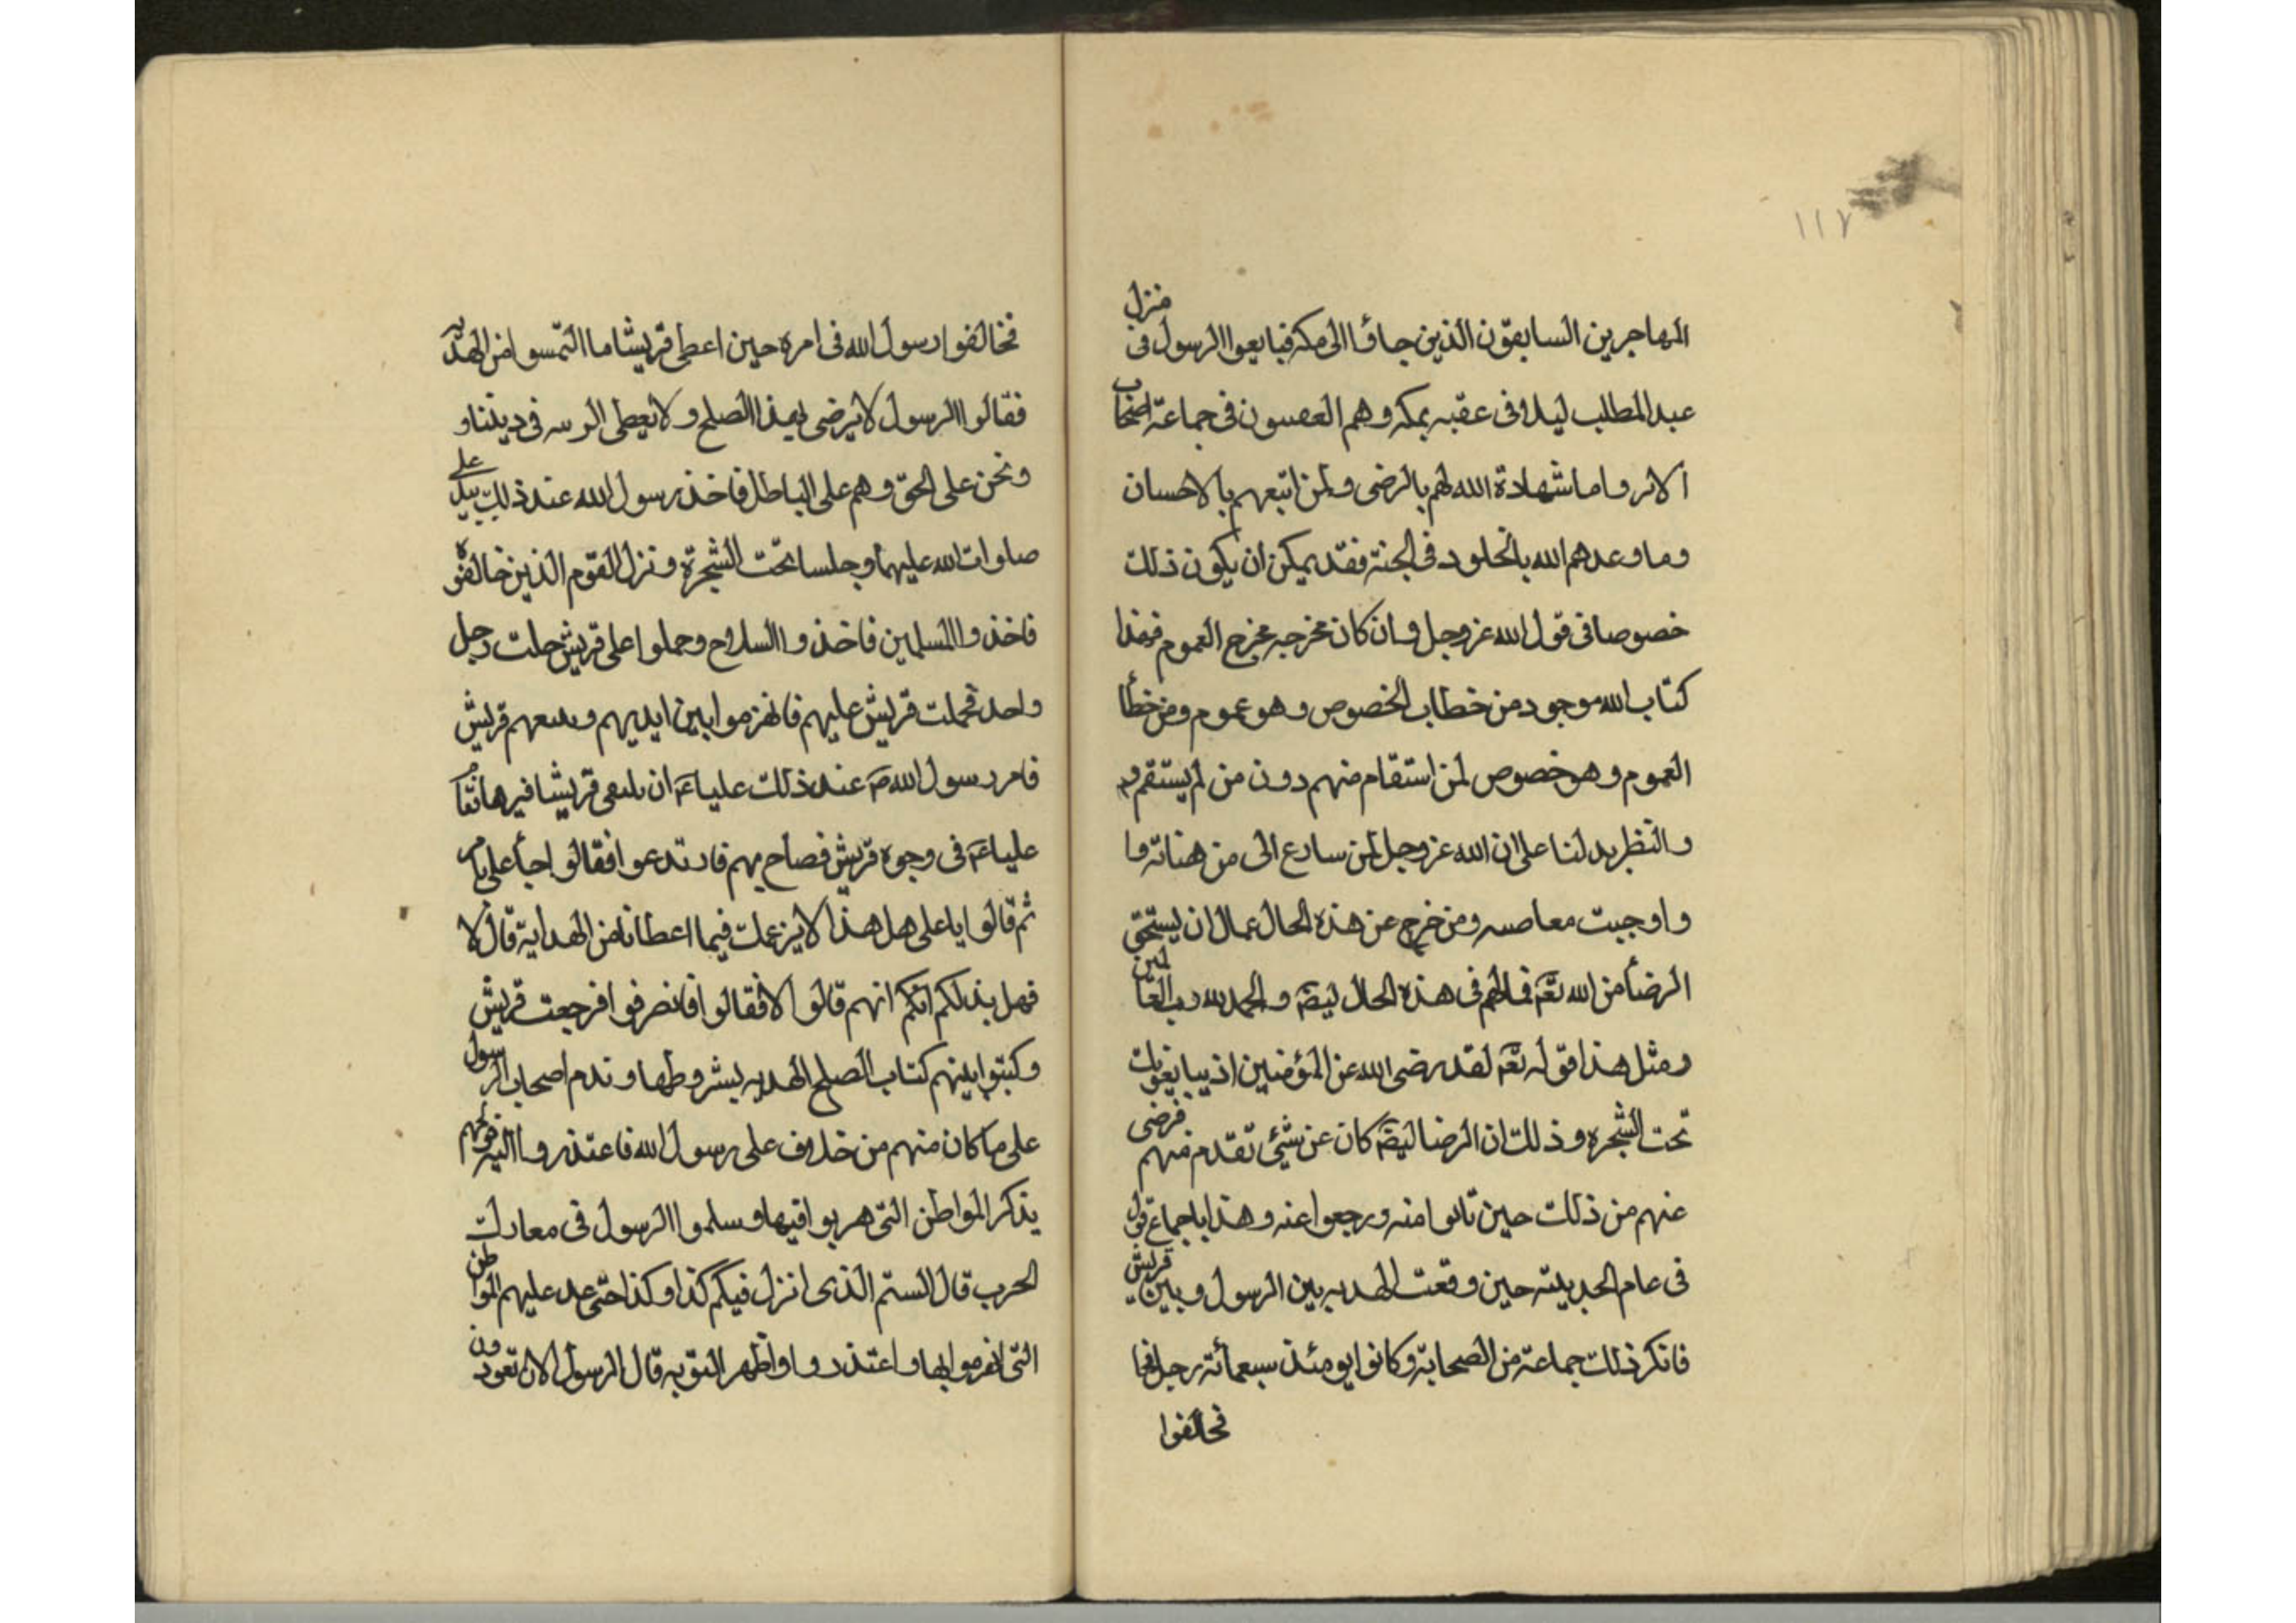 ١١٧
المهاجرين السابقون الذين جاؤا الى مكة فبايعوا الرسول فى منزل
عبد المطلب ليلا فى عقبه بمكه وهم فى جماعة اصحاب
الاثر واما شهادة الله لهم بالرضى ولمن اتبعهم بالاحسان
وما وعدهم الله بالخلود فى الجنة فقد يمكن ان يكون ذلك
خصوصا فى قول الله عز وجل وان كان مخرجه مخرج العموم فهذا
كتاب الله موجود من خطاب الخصوص وهو عموم ومن خطا
العموم وهو خصوص لمن استقام منهم دون من لم يستقم
والنظر يدلنا على ان الله عز وجل لمن سارع الى من
واوجبت ومن خرج عن هذه الحال عمال ان يستحق
الرضأ من الله تعالى فى هذه الحال ايضا والحمد لله رب العالمين
ومثل هذا قوله تعالى لقد رضى الله عن المؤمنين اذ يبايعونك
تحت الشجره وذلك ان الرضا ايضا كان عن شئ تقدم منهم فرضى
عنهم من ذلك حين تابوا منه ورجعوا عنه وهذا باجماع قول
فى عام الحديبته حين وقعت الهدبه بين الرسول وبين قريش
فانكر ذلك جماعة من الصحابة وكانوا يومئذ سبعمائة رجل
فخالفوا
فخالفوا رسول الله فى امره حين اعطى قريشا ما التمسوا من الهديه
فقالوا الرسول لا يرضى بهذا الصلح ولا يعطى فى ديننا و
ونحن على الحق وهم على الباطل فاخذ رسول الله عند ذلك بيد على
صلوات الله عليهما وجلسا تحت الشجرة ونزل القوم الذين خالفوه
فاخذوا المسلمين فاخذوا السلاح وحملوا على قريش حلت رجل
واحد فحملت قريش عليهم فانهزموا بين ايديهم قريش
فامر رسول الله ص عند ذلك عليا ع ان قريشا
عليا ع فى وجوه قريش فصاح بهم فارتدعوا فقالوا
ثم قالوا يا على هل هذا لا يزعمك فيما اعطانا من الهداية قال لا
فهل بذلكم انكم انهم قالوا لا فقالوا فانصرفوا فرجعت قريش
وكتبوا بينهم كتاب الصلح الهدبه بشروطها وندم اصحاب الرسول
على ما كان منهم من خلاف على رسول الله فاعتذروا اليه
يذكر المواطن التى هربوا فيها وسلموا الرسول فى معارك
الحرب قال الستم الذى انزل فيكم كذا وكذا حتى عد عليهم المواطن
التى انهزموا بها واعتذروا واظهر التوبه قال الرسول الان تعودون